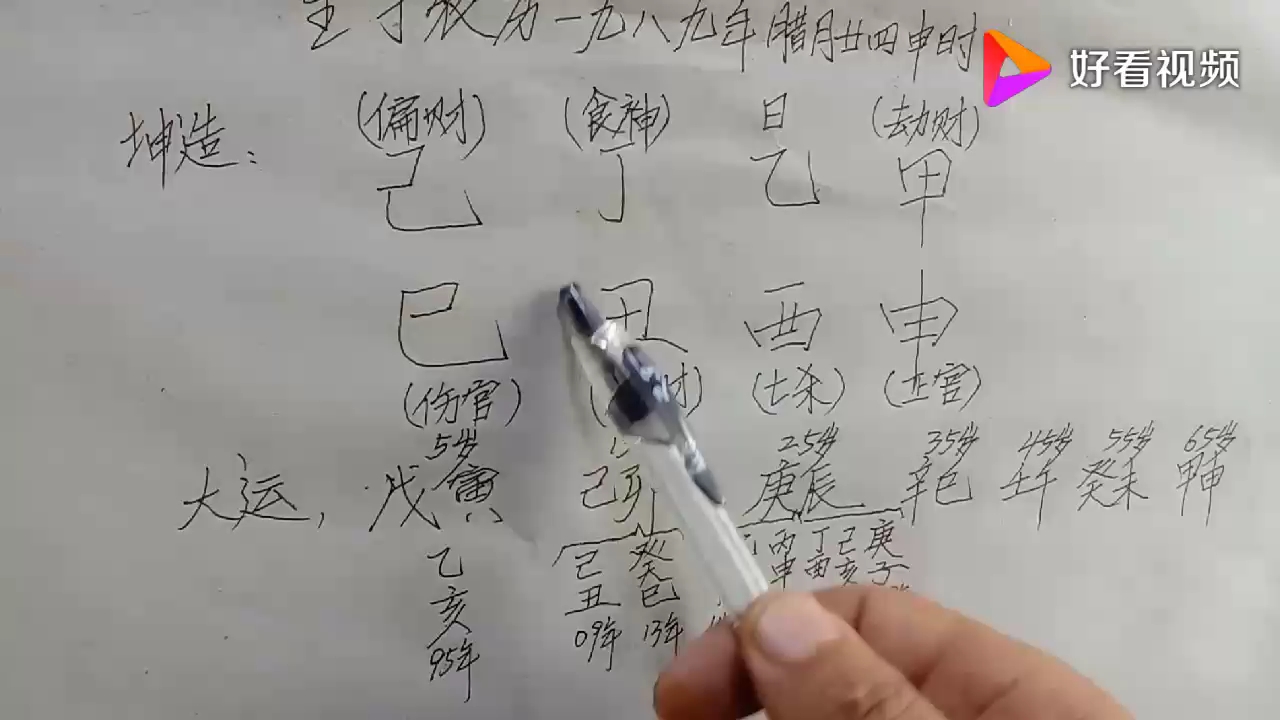 生于农历一九八九年腊月廿四申时
好看视频
(偏财) (食神) 日 (劫财)
坤造：
己 丁 乙 甲
巳 丑 酉 申
(伤官) 财) (七杀) (正官)
5岁 25岁 35岁 45岁 55岁 65岁
大运，戊寅 己卯 庚辰 辛巳 壬午 癸未 甲申
乙亥 己丑 癸巳 丙申 丁酉 己亥 庚子
95年 09年 13年